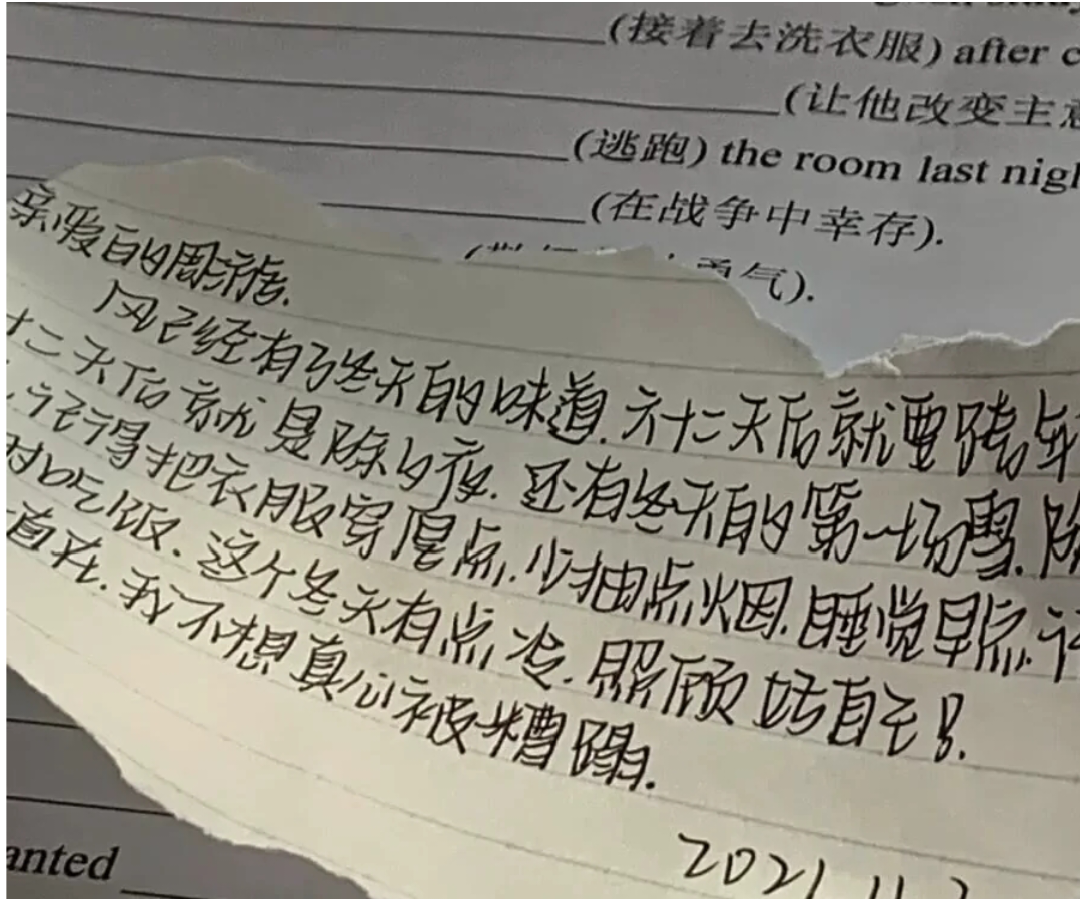 (接着去洗衣服) after c
(让他改变主意
(逃跑) the room last nigh
(在战争中幸存).
勇气).
亲爱的周
风已经有了冬天的味道.六十二天后就要跨年
十二天后就是除夕夜.还有冬天的第一场雪.除
记得把衣服穿厚点.少抽点烟.睡觉早点.记
时吃饭.这个冬天有点冷.照顾好自己.
直在.我不想真心被糟蹋.
2021.11.2
anted